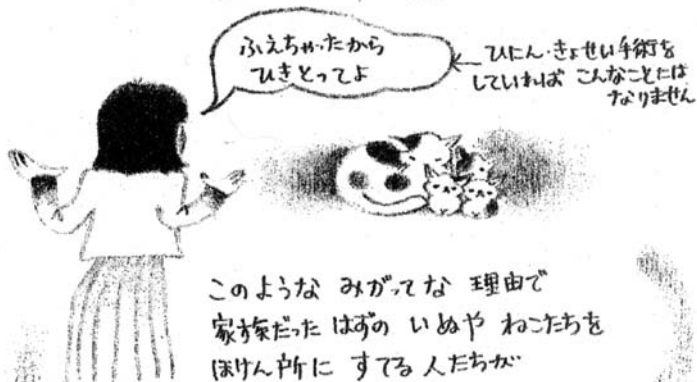 ふえちゃったから
ひきとってよ
ひにん・きょせい手術を
していれば こんなことには
なりません
このような みがってな 理由で
家族だった はずの いぬや ねこたちを
ほけん所に すてる 人たちが